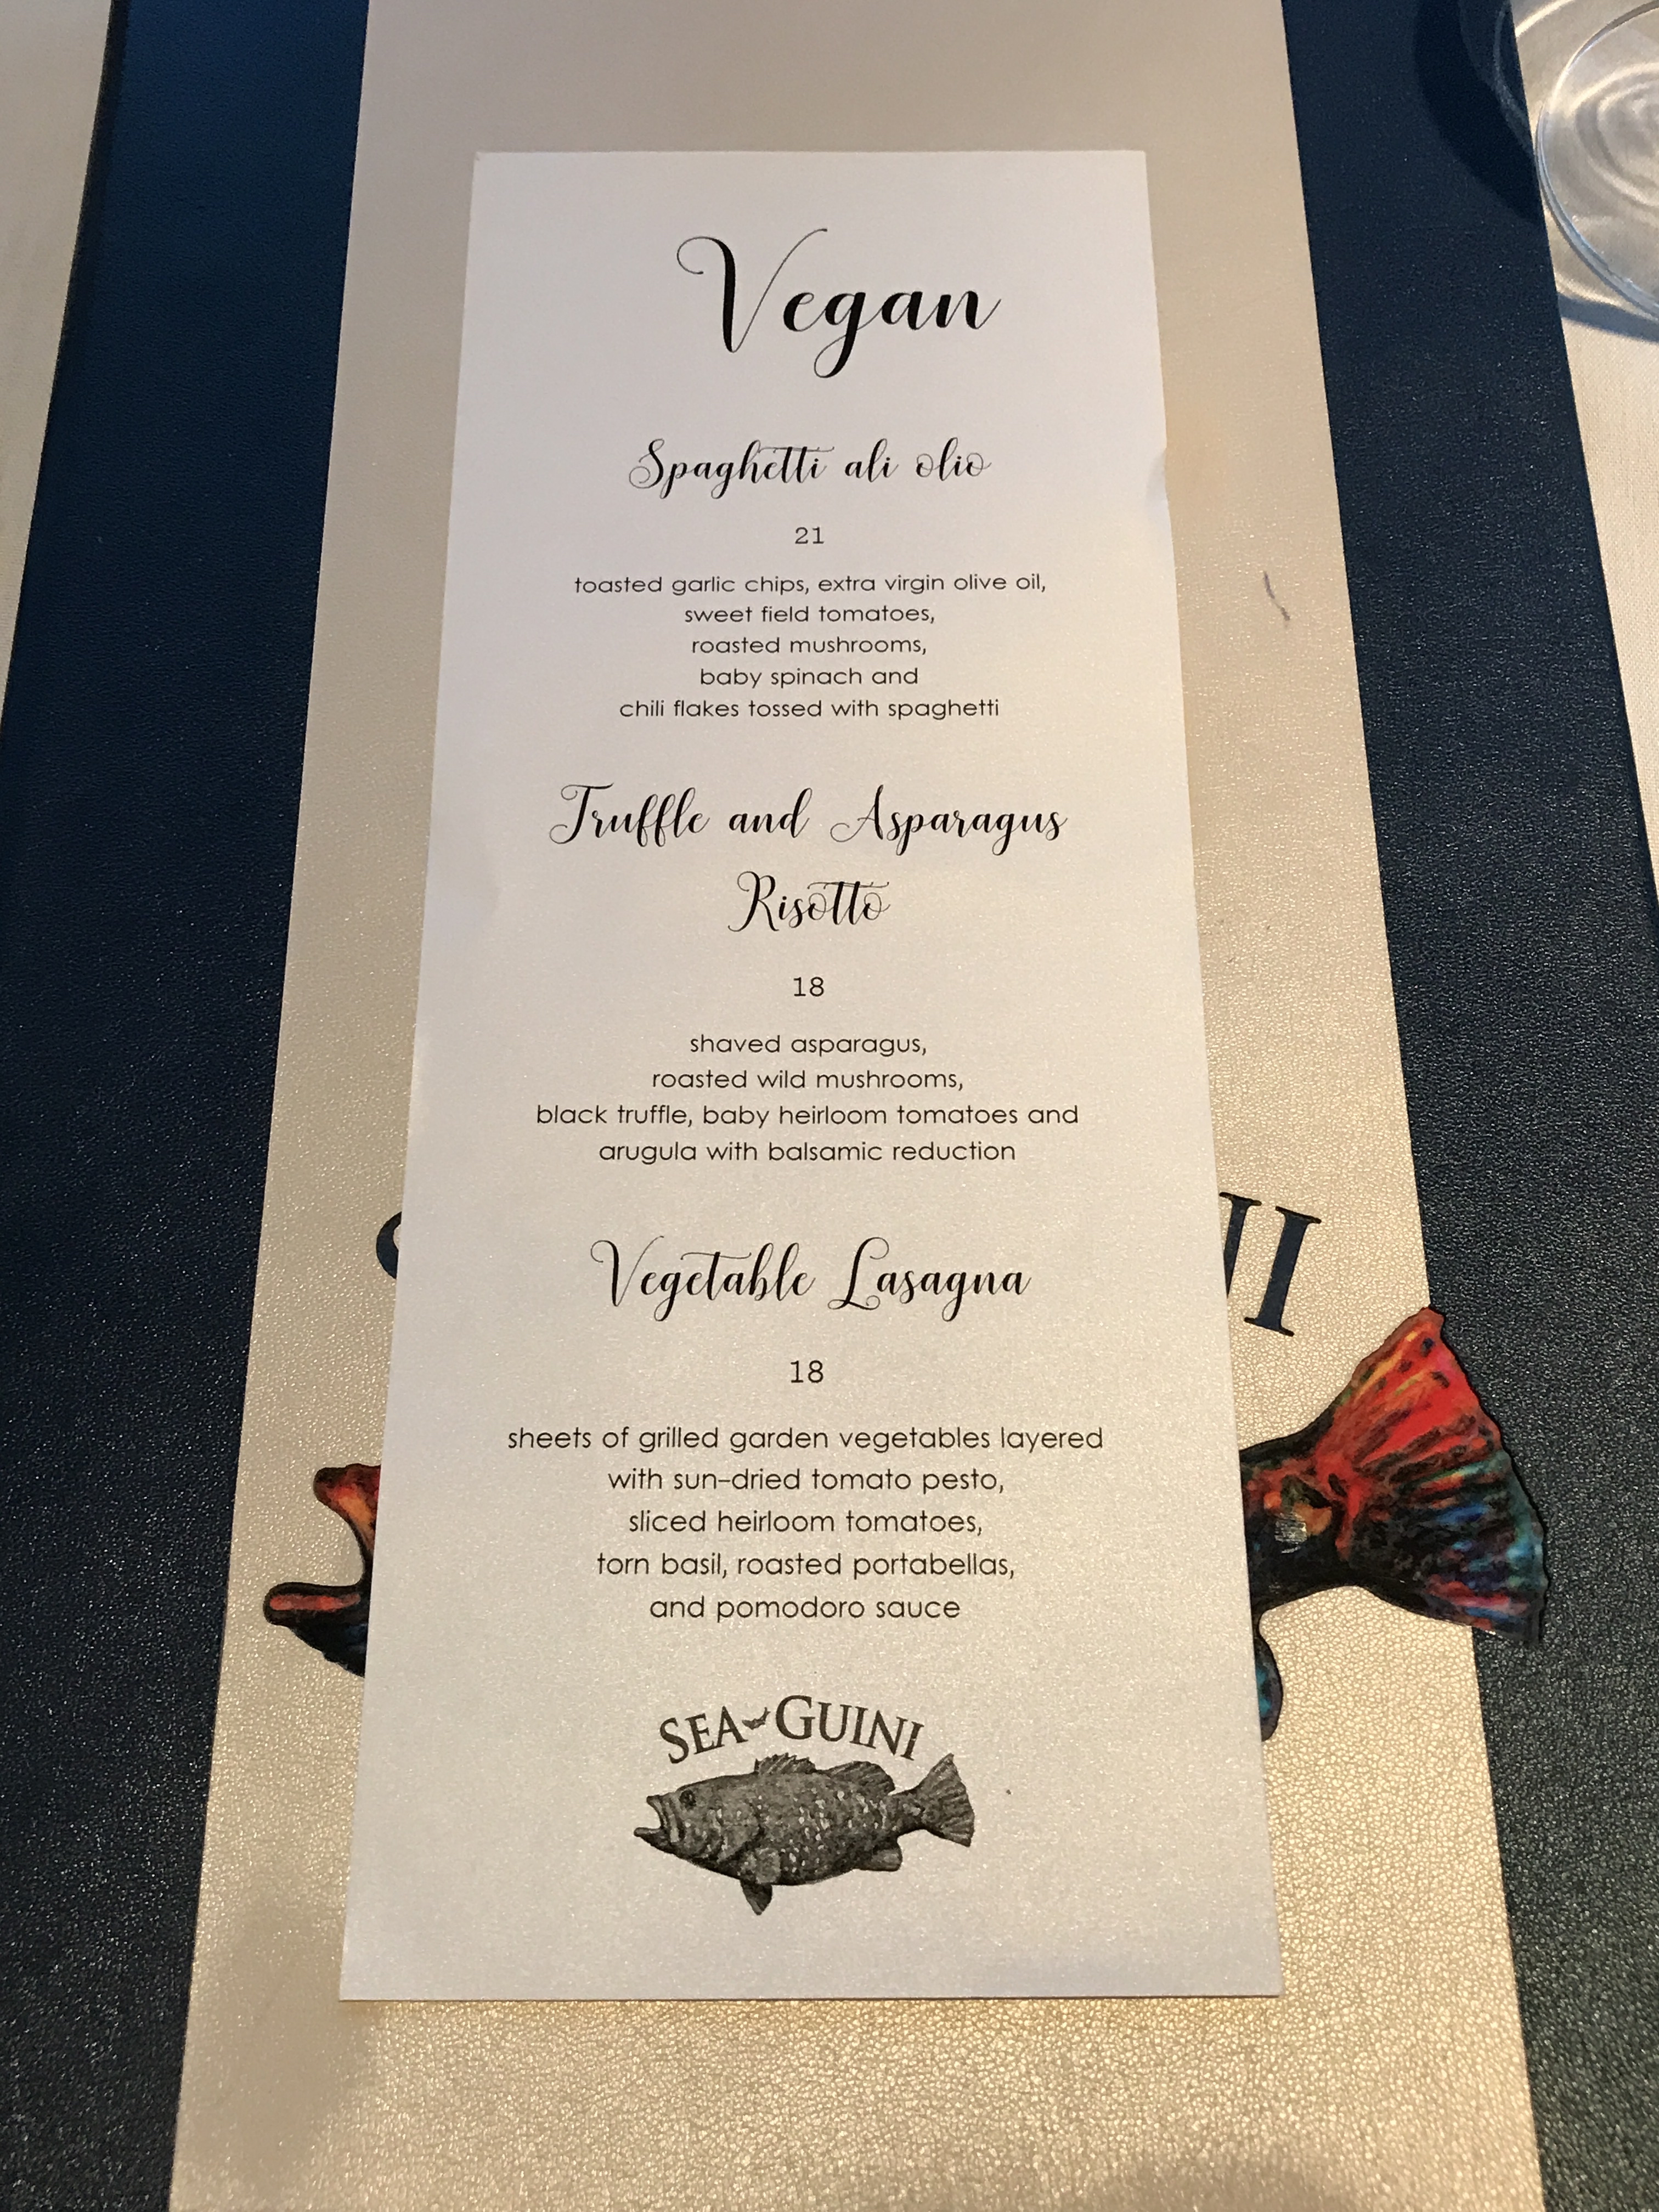 Vegan
Spaghetti ali olio
21
toasted garlic chips, extra virgin olive oil,
sweet field tomatoes,
roasted mushrooms,
baby spinach and
chili flakes tossed with spaghetti
Truffle and Asparagus
Risotto
18
shaved asparagus,
roasted wild mushrooms,
black truffle, baby heirloom tomatoes and
arugula with balsamic reduction
Vegetable Lasagna
18
sheets of grilled garden vegetables layered
with sun-dried tomato pesto,
sliced heirloom tomatoes,
torn basil, roasted portabellas,
and pomodoro sauce
SEA GUINI